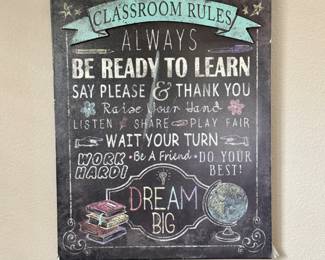 CLASSROOM RULES
ALWAYS
BE READY TO LEARN
SAY PLEASE & THANK YOU
Raise Your Hand
LISTEN SHARE PLAY FAIR
WAIT YOUR TURN
WORK HARD! • Be A Friend • DO YOUR BEST!
DREAM
BIG